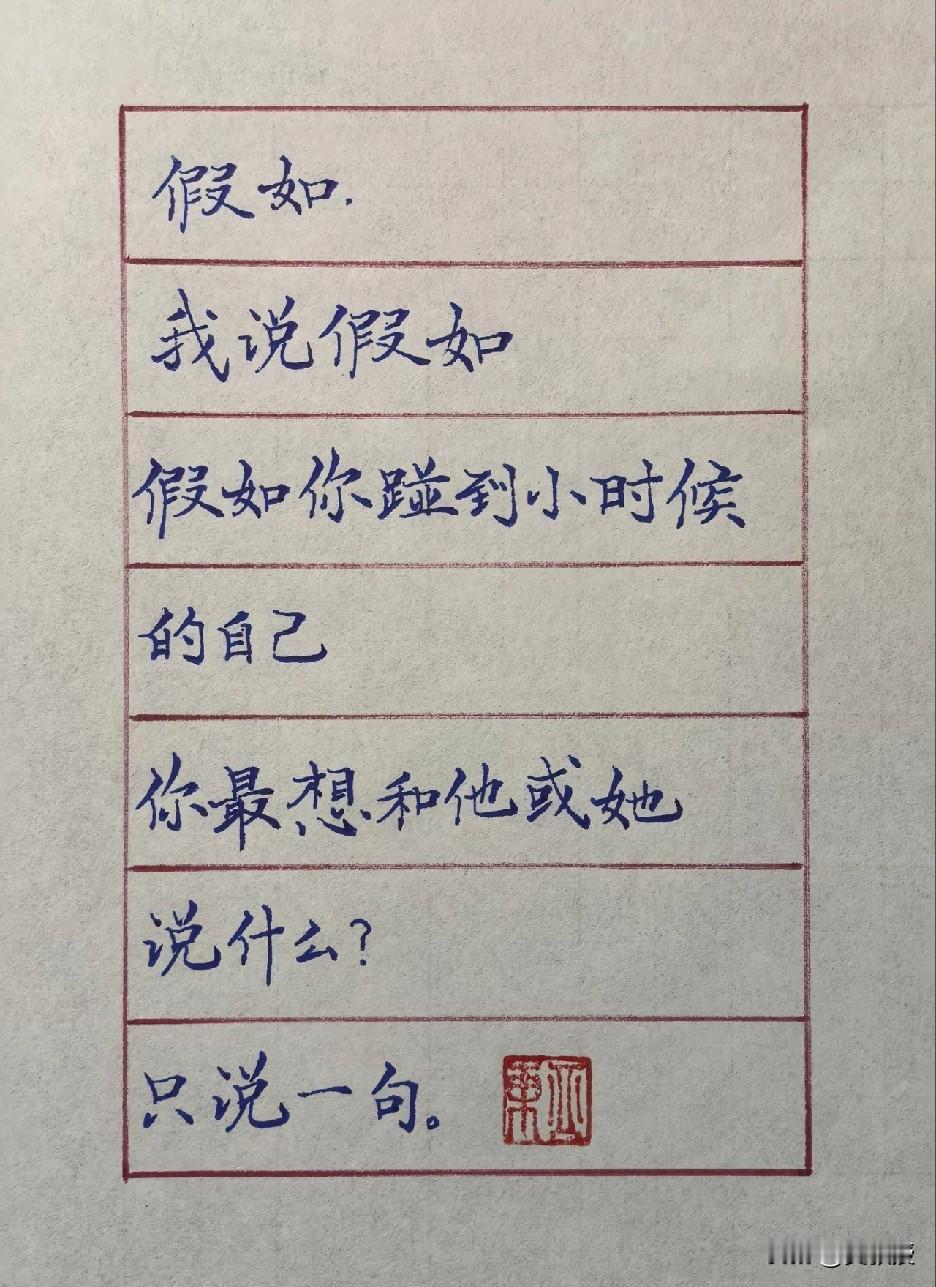 假如.
我说假如
假如你踫到小时候
的自己
你最想和他或她
说什么?
只说一句。